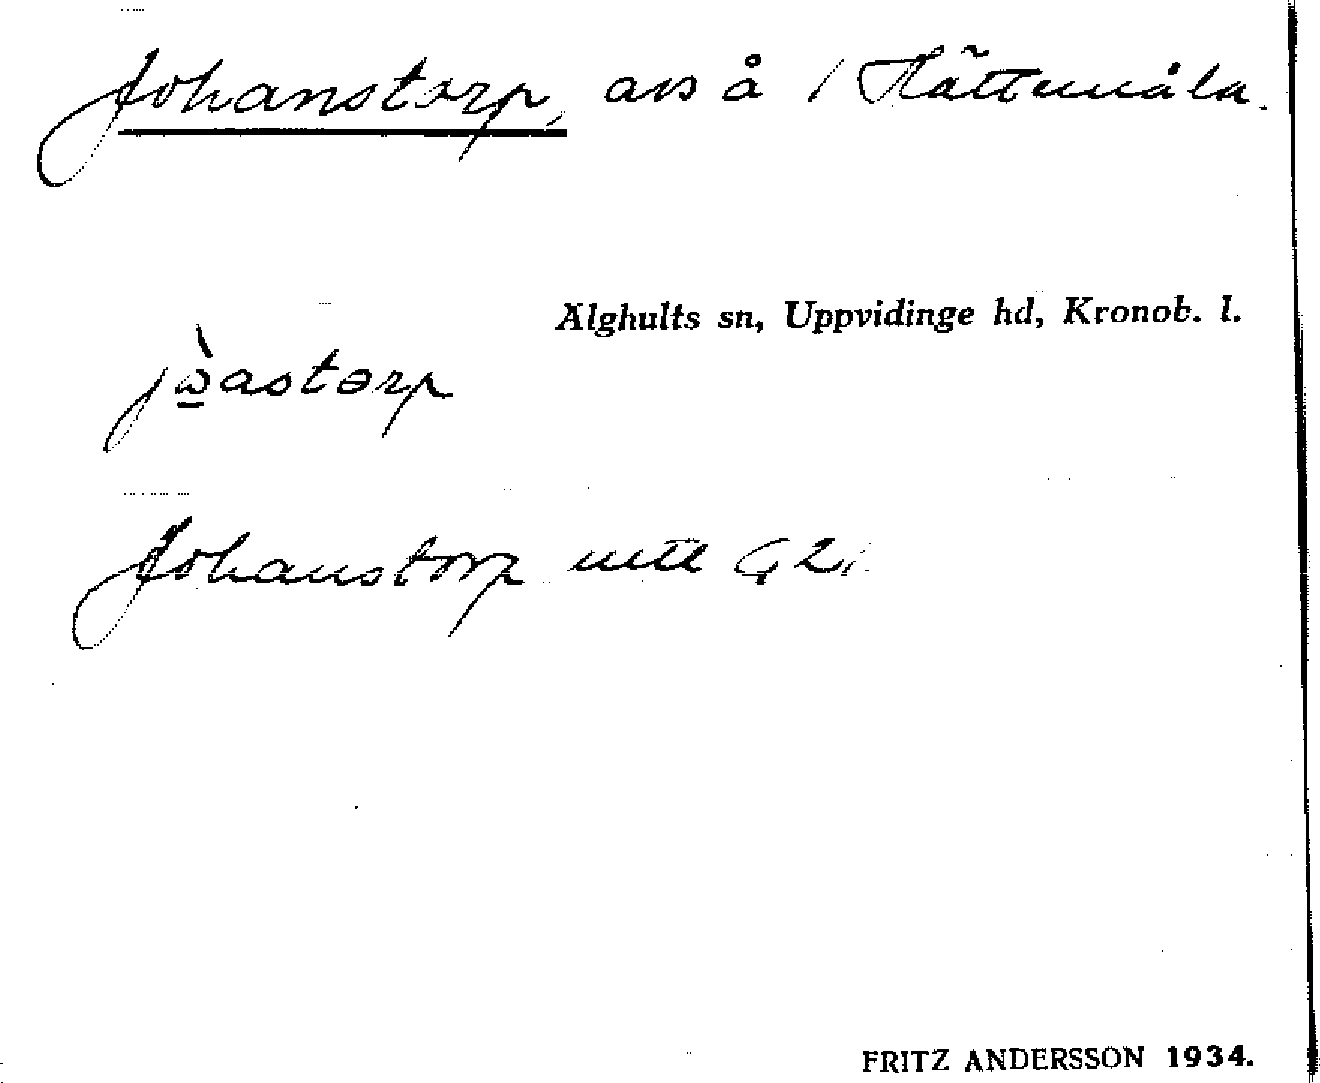 Johanstorp, avs å 1 Flättmåla.
Älghults sn, Uppvidinge hd, Kronob. l.
jòastorp
Johanstorp mtl G2
FRITZ ANDERSSON 1934.